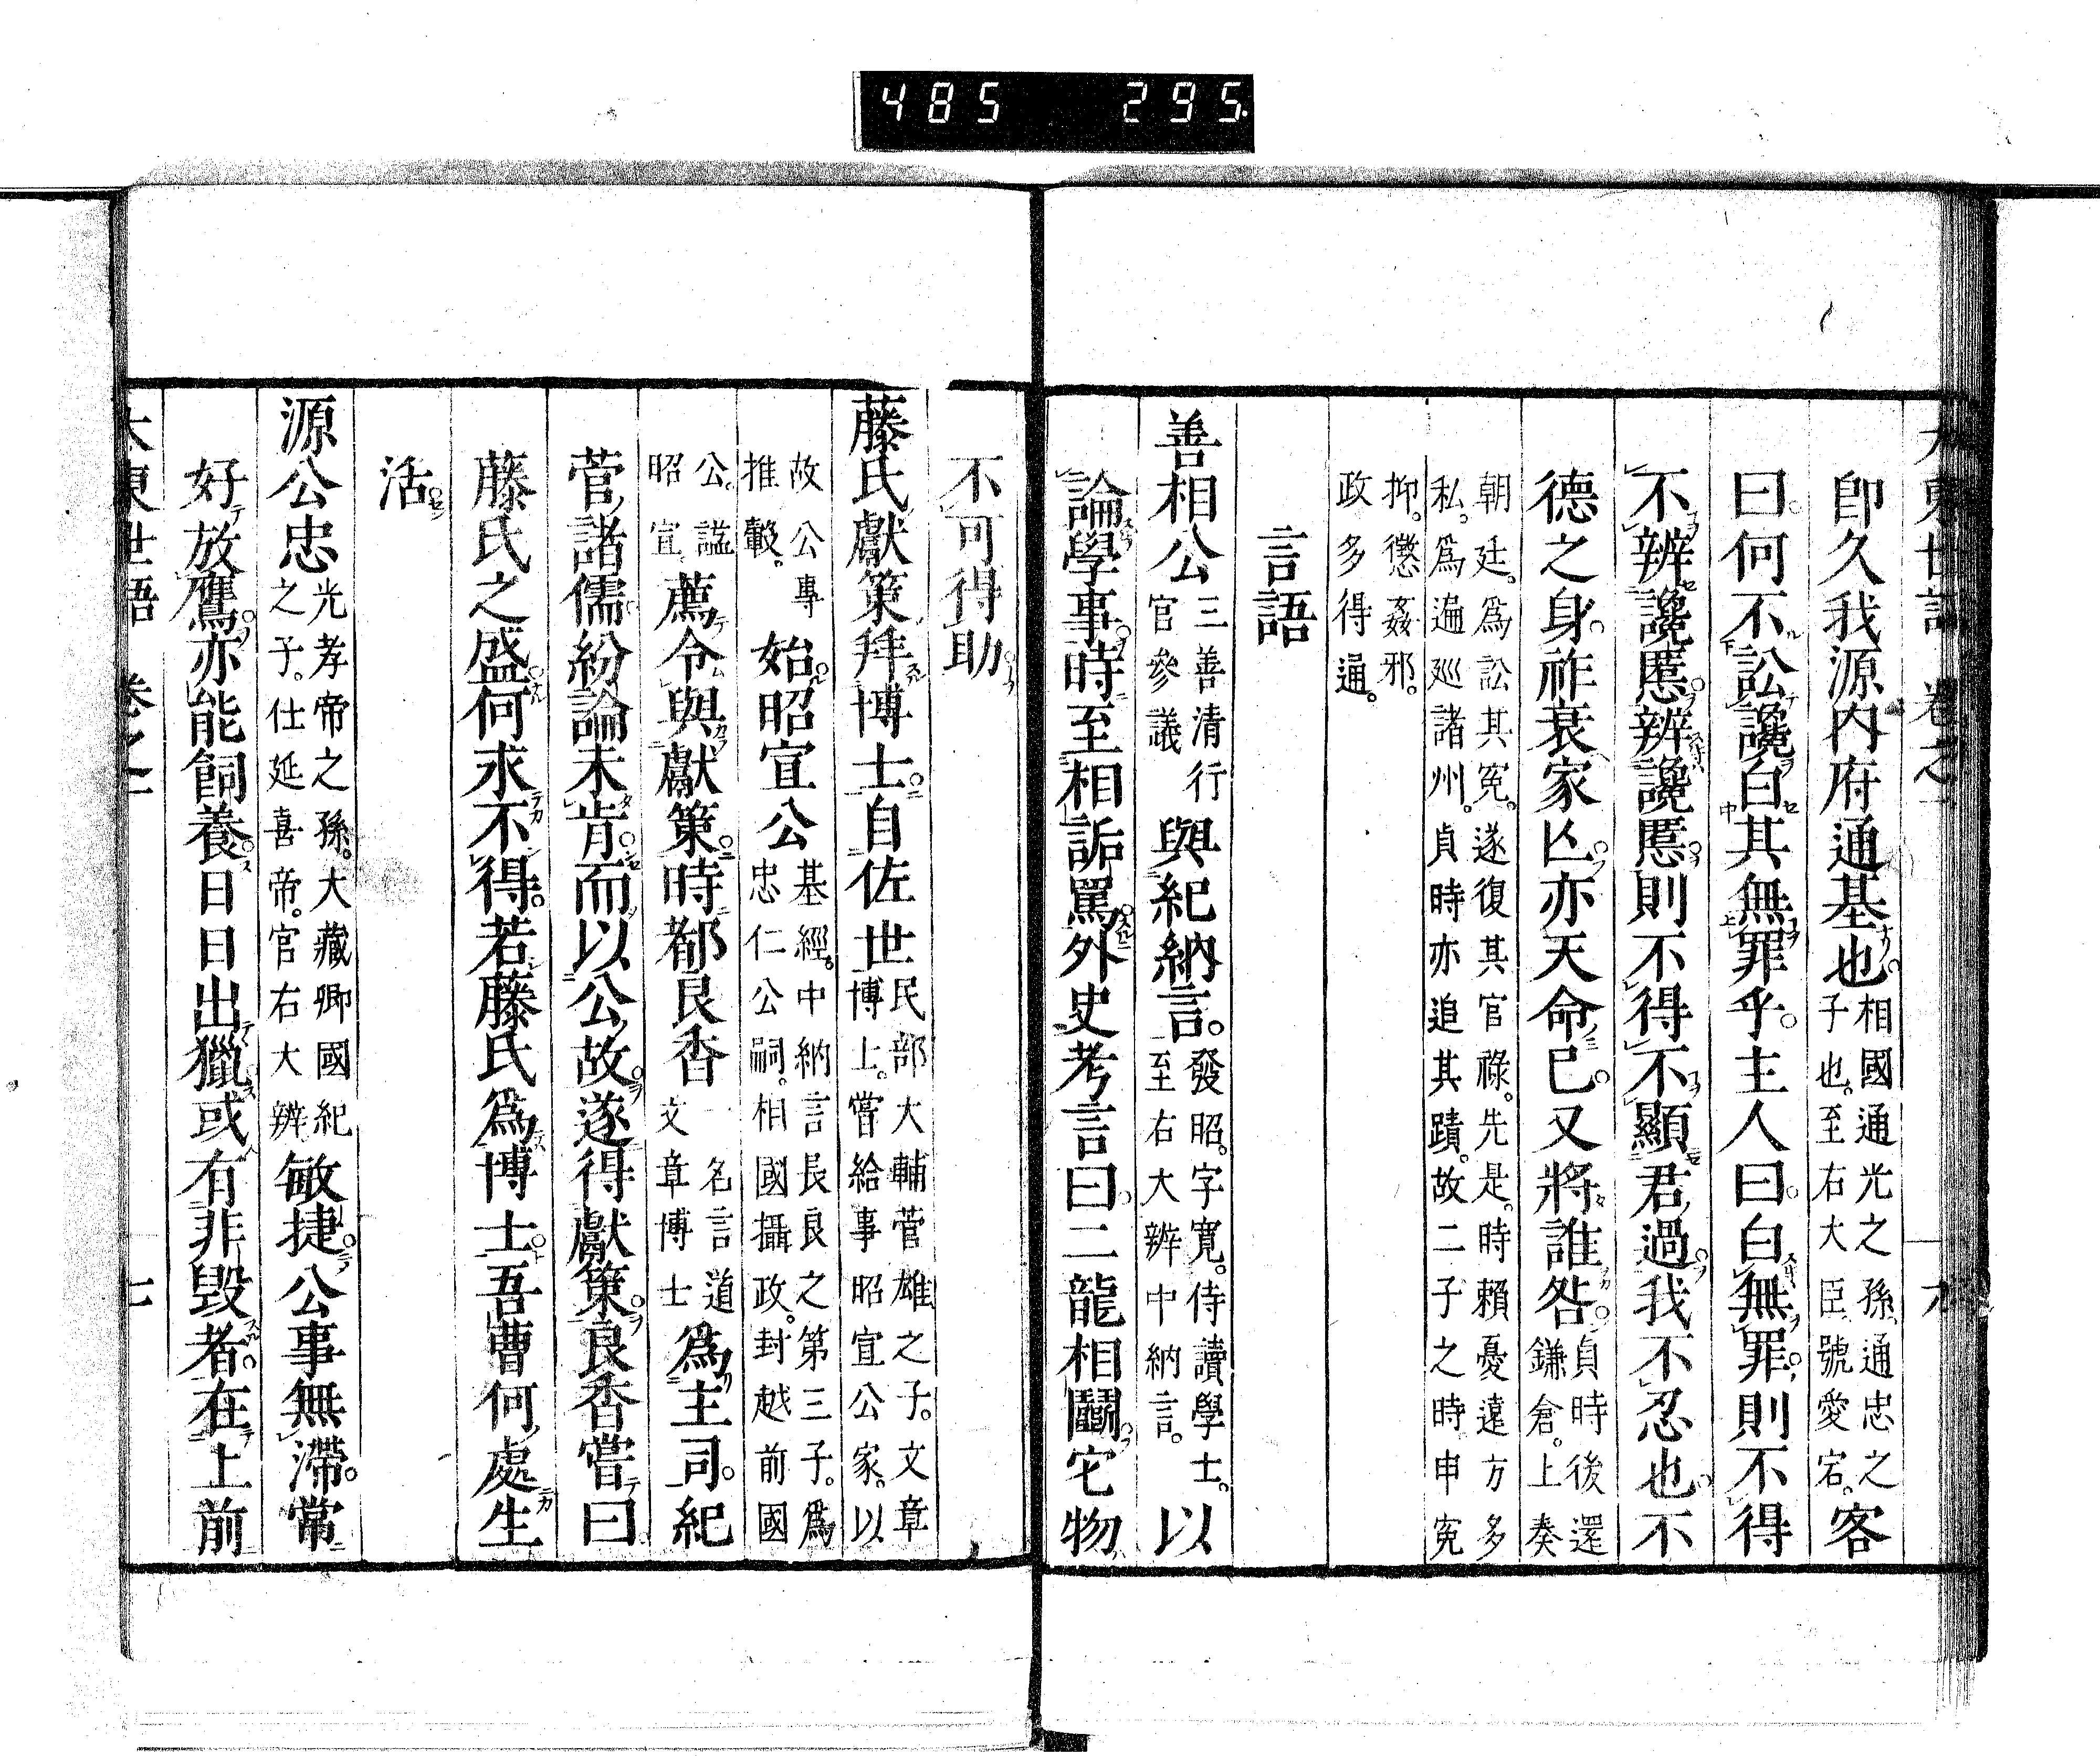 485 295
大東世語 卷之一 九
卽久我源內府通基也相國通光之孫、通忠之子也。至右大臣、號愛宕。客
曰何不訟讒白其無罪乎主人曰白無罪則不得
不辨讒慝辨讒慝則不得不顯君過我不忍也不
德之身祚衰家亾亦天命已又將誰咎貞時後還鎌倉。上奏
朝廷。爲訟其冤。遂復其官祿。先是。時賴憂遠方多私。爲遍廵諸州。貞時亦追其蹟。故二子之時申寃
抑。懲姦邪。政多得通。
言語
善相公三善清行官參議與紀納言。發昭。字寬。侍讀學士。至右大辨中納言。以
論學事時至相詬罵外史考言曰二龍相鬪它物
不可得助
藤氏獻策拜博士自佐世民部大輔菅雄之子。文章博上。嘗給事昭宣公家。以
故公專推轂。始昭宣公基經。中納言長良之第三子。爲忠仁公嗣。相國攝政。封越前國
公。謚昭宣薦令與獻策時都良香一名言道文章博士爲主司紀
菅諸儒紛論未肯而以公故遂得獻策良香嘗曰
藤氏之盛何求不得若藤氏爲博士吾曹何處生
活
源公忠光孝帝之孫。大藏卿國紀之子。仕延喜帝。官右大辨敏捷公事無滯常
好放鷹亦能飼養日日出獵或有非毀者在上前
大東世語 卷之一 七